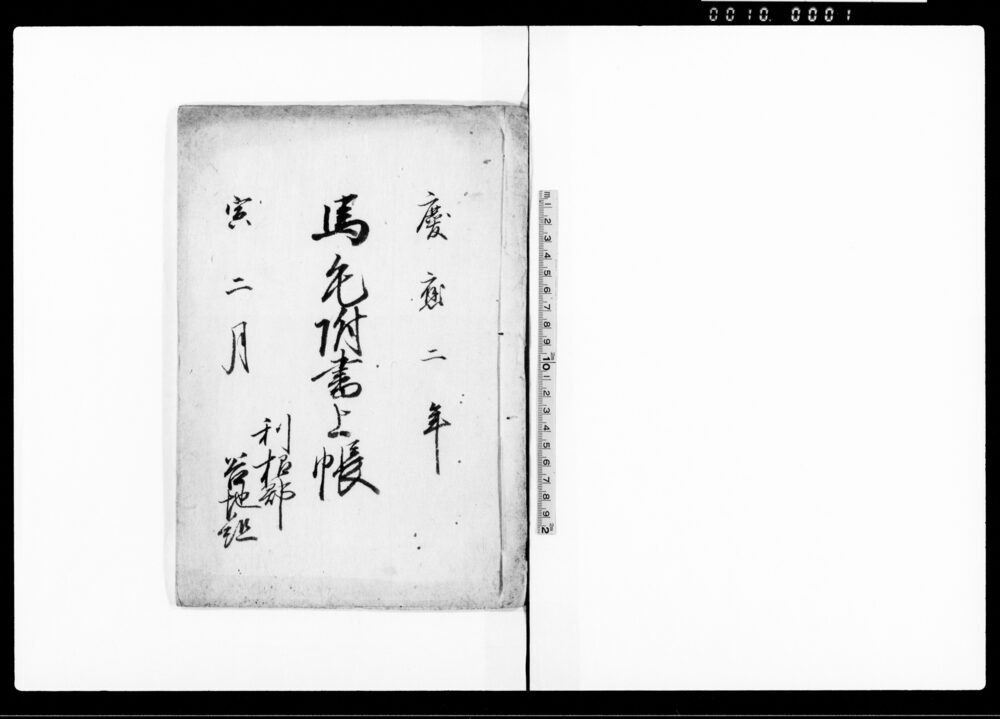 0010. 0001
慶應二年
馬毛附書上帳
寅二月
利根郡
谷地組
m 1 2 3 4 5 6 7 8 9 10 1 2 3 4 5 6 7 8 9 2